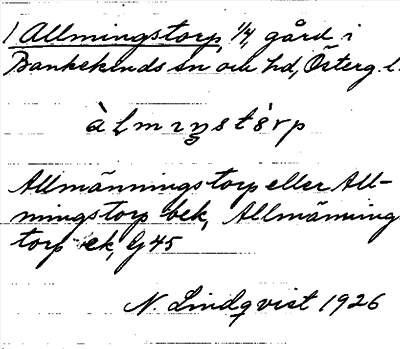 1 Allmingstorp, 1/4, gård i
Bankekinds sn och hd, Österg. l.
àlmıŋstȯ̀rp
Allmänningstorp eller All-
mingstorp bek, Allmänning
torp ek, G 45
N. Lindqvist 1926